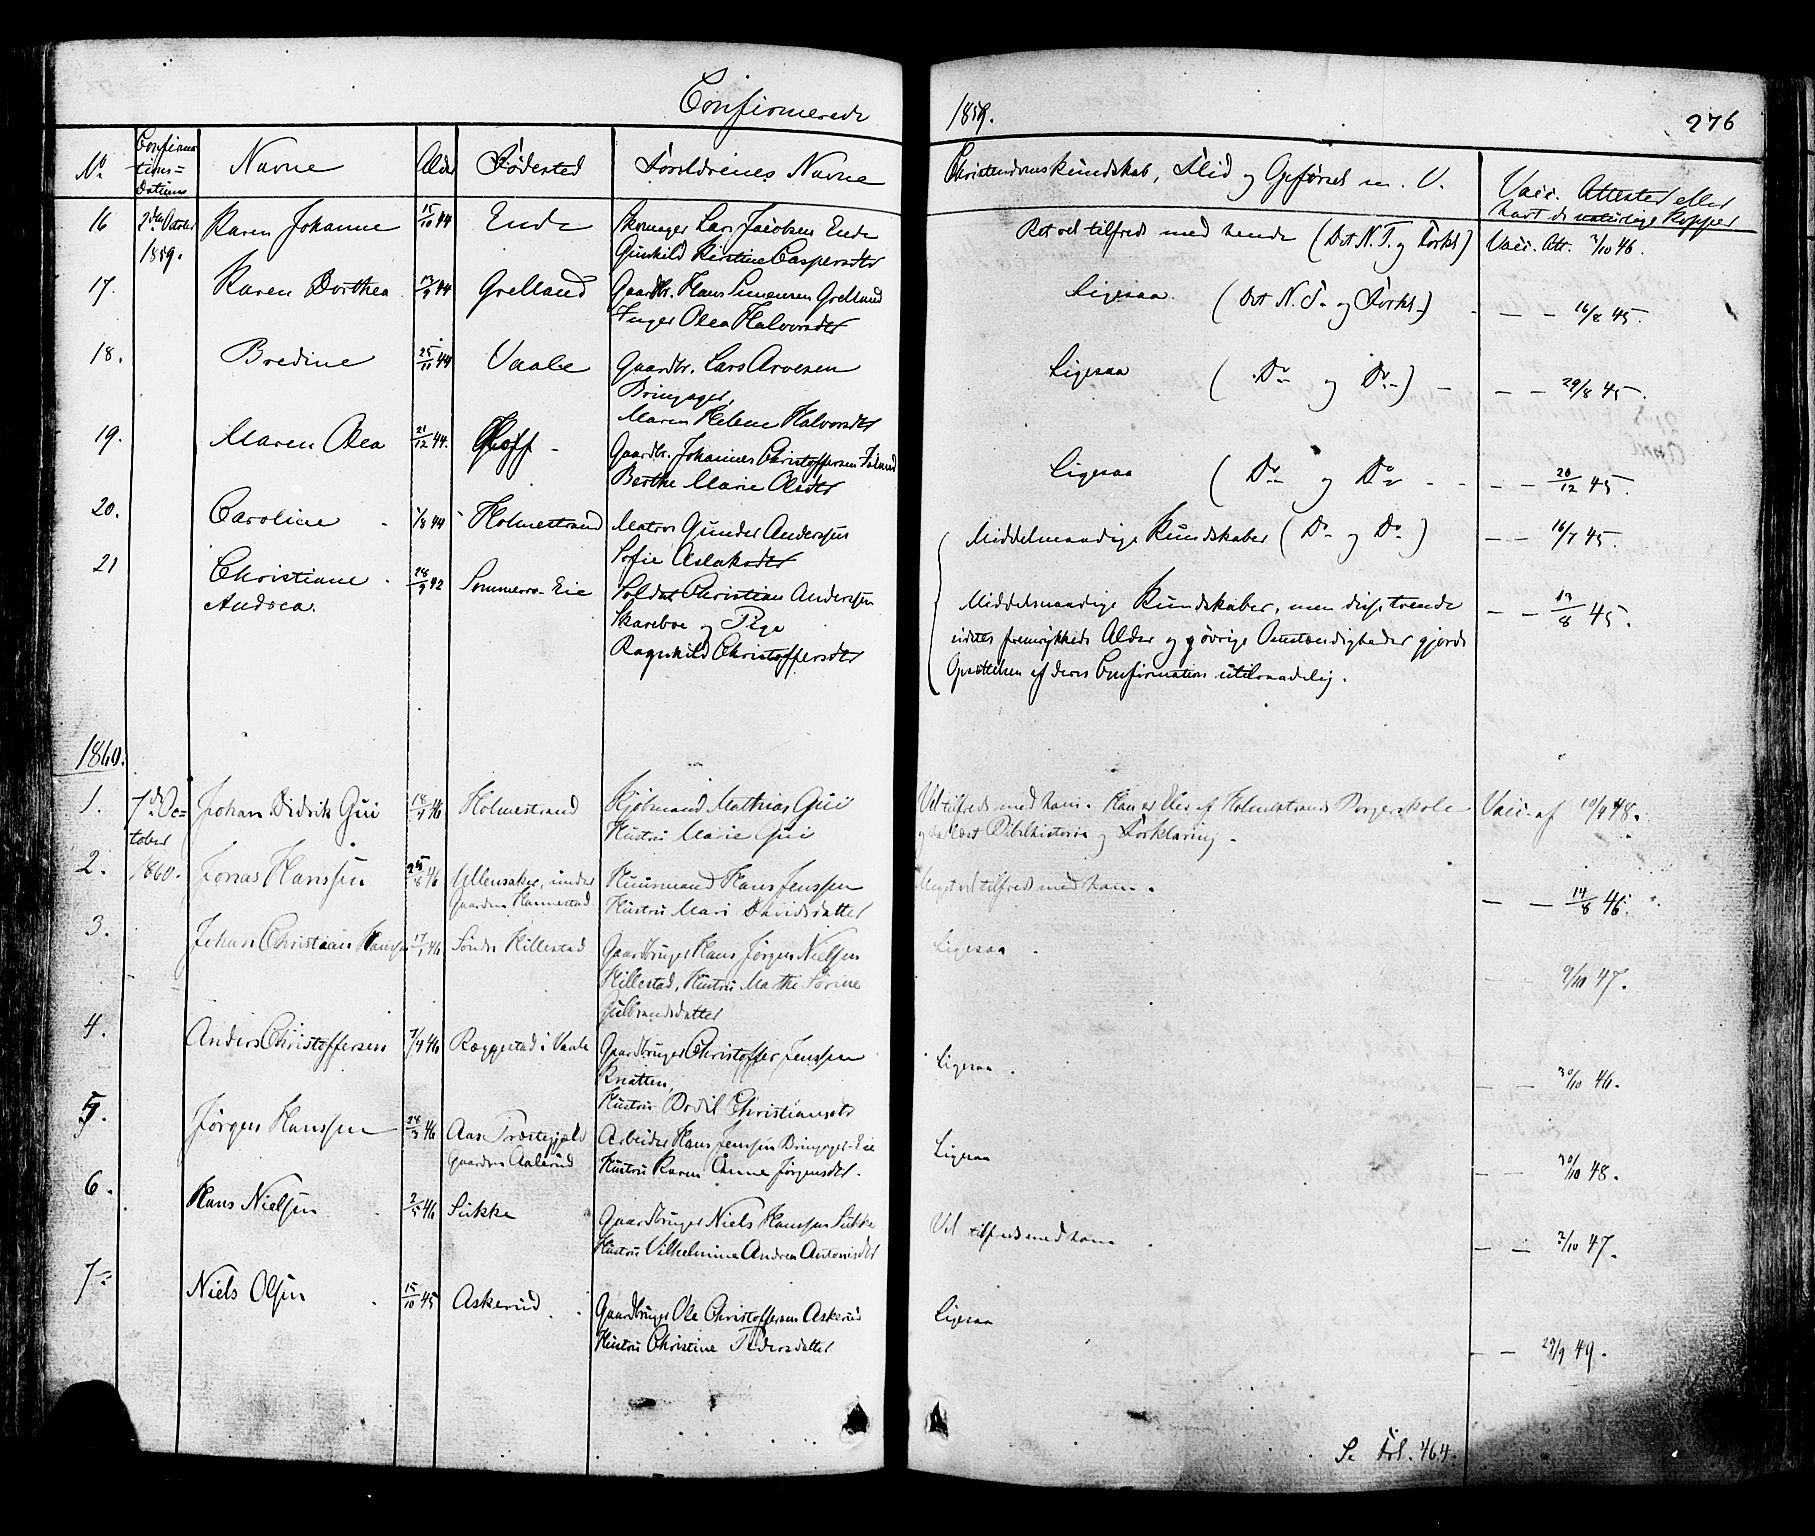 Confirmerede 1859. 276
No Confirmations-Datum Navne Alder Fødested Forældrenes Navne Christendomskundskab, Flid og Opførsel m. V. Vacc. Attester eller havt de naturlige Kopper
16 2den October 1859. Karen Johanne 15/10 44 Ende Skomager Lars Jacobsen Ende Ret vel tilfreds med hende (Det N. T. og Forkl.) Vacc. Att. 7/10 46.
Gunhild Kirstine Caspersdtr
17. Karen Dorthea 13/9 44 Grelland Gaardbr. Hans Simensen Grelland Ligesaa (Det N. T. og Forkl.) — — 16/8 45.
Inger Olea Halvorsdtr
18. Bredine 25/11 44 Vaale Gaardbr. Lars Arvesen Ligesaa (Do og Do) — — 29/8 45.
Bringager,
Maren Helene Halvorsdtr
19. Maren Olea 21/12 44. Gaardbr. Johannes Christoffersen Ligesaa (Do og Do — — 20/12 45.
Berthe Marie Olsdtr
20. Caroline 1/8 44 Holmestrand Matros Gunder Anderssen Middelmaadige Kundskaber (Do og Do) — — 16/7 45.
Sofie Aslaksdtr
21 Christiane Andrea. 28/9 42 Sommerro Eie Soldat Christian Anderssen Middelmaadige Kundskaber, men disse tvende — — 13/8 45.
Skareboe og Pige fremrykkede Alder og øvrige Omstændigheder gjorde
Ragnhild Christoffersdtr Opsættelsen af deres Confirmation utilraadelig.
1860.
1. 7de October 1860. Johan Didrik Gui 18/4 46 Holmestrand Kjøbmand Mathias Gui Vel tilfreds med ham. Han er Elev af Holmestrands Borgerskole Vacc. af 10/9 48.
Hustru Marie Gui og har læst Bibelhistorie og Forklaring.
2. Jonas Hanssen 25/8 46 Ullensaker, under Gaarden Hannestad Huusmand Hans Jenssen Meget vel tilfreds med ham. — — 14/8 46.
Hustru Mari Davidsdatter
3. Johan Christian Hanssen 17/1 46 Søndre Hillestad Gaardbruger Hans Jørgen Nielsen Ligesaa. — 9/10 47.
Hillestad, Hustru Mathe Sørine
Gulbrandsdatter
4. Anders Christoffersen 7/4 46 Ræggestad i Vaale Gaardbruger Christoffer Jenssen Ligesaa. — — 30/10 46.
Knatten,
Hustru Bodil Christiansdtr
5. Jørgen Hanssen 28/3 46 Aas Præstegjeld Gaarden Aalerud Arbeider Hans Jenssen Bringager-Eie Ligesaa — — 30/10 48.
Hustru Karen Anne Jørgensdtr.
6. Hans Nielsen 2/5 46 Sukke Gaardbruger Niels Hanssen Sukke Vel tilfreds med ham — — 2/10 47.
Hustru Vilhelmine Andrea Antonisdtr
7. Niels Olsen 15/10 45 Askerud Gaardbruger Ole Christoffersen Askerud Ligesaa — — 29/9 49.
Hustru Christine Pedersdatter
Se Fol. 464.